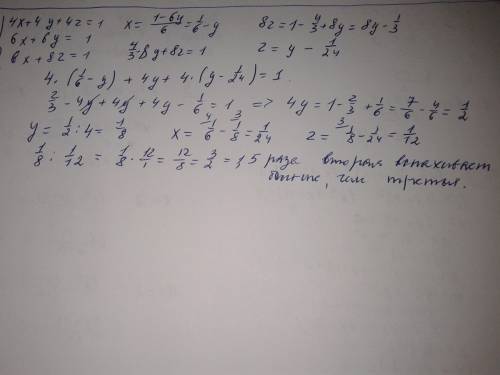 4x+4y+4z=1 x=\frac{1-6y}{6}=\frac{1}{6}-y 8z=1-\frac{4}{3}+8y=8y-\frac{1}{3}
6x+6y=1
8x+8z=1 \frac{4}{3}-8y+8z=1 z=y-\frac{1}{24}
4·(\frac{1}{6}-y)+4y+4·(y-\frac{1}{24})=1
\frac{2}{3}-4y+4y+4y-\frac{1}{6}=1 => 4y=1-\frac{2}{3}+\frac{1}{6}=\frac{7}{6}-\frac{4}{6}=\frac{1}{2}
y=\frac{1}{2}:4=\frac{1}{8} x=\frac{1}{6}-\frac{1}{8}=\frac{1}{24} z=\frac{1}{8}-\frac{1}{24}=\frac{1}{12}
\frac{1}{8}:\frac{1}{12}=\frac{1}{8}·\frac{12}{1}=\frac{12}{8}=\frac{3}{2}=1,5 раза вторая вспахивает
больше, чем третья.